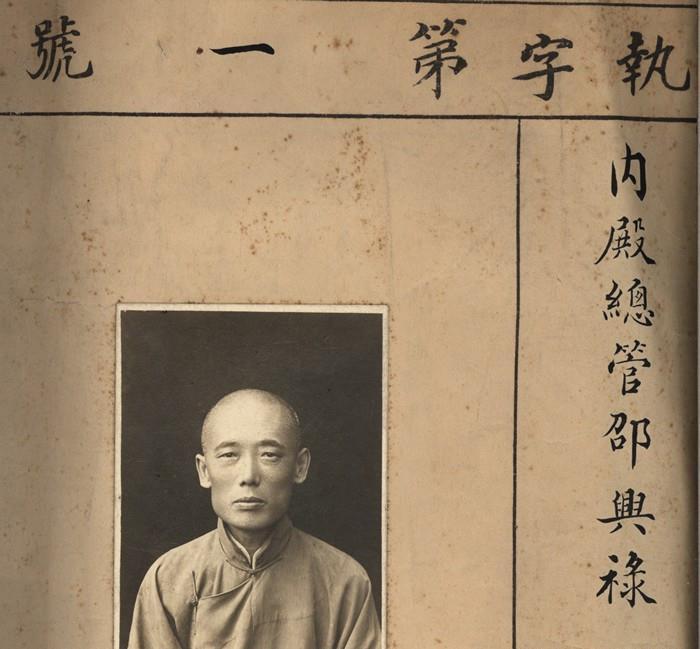 執字第一號
内殿總管邵興祿